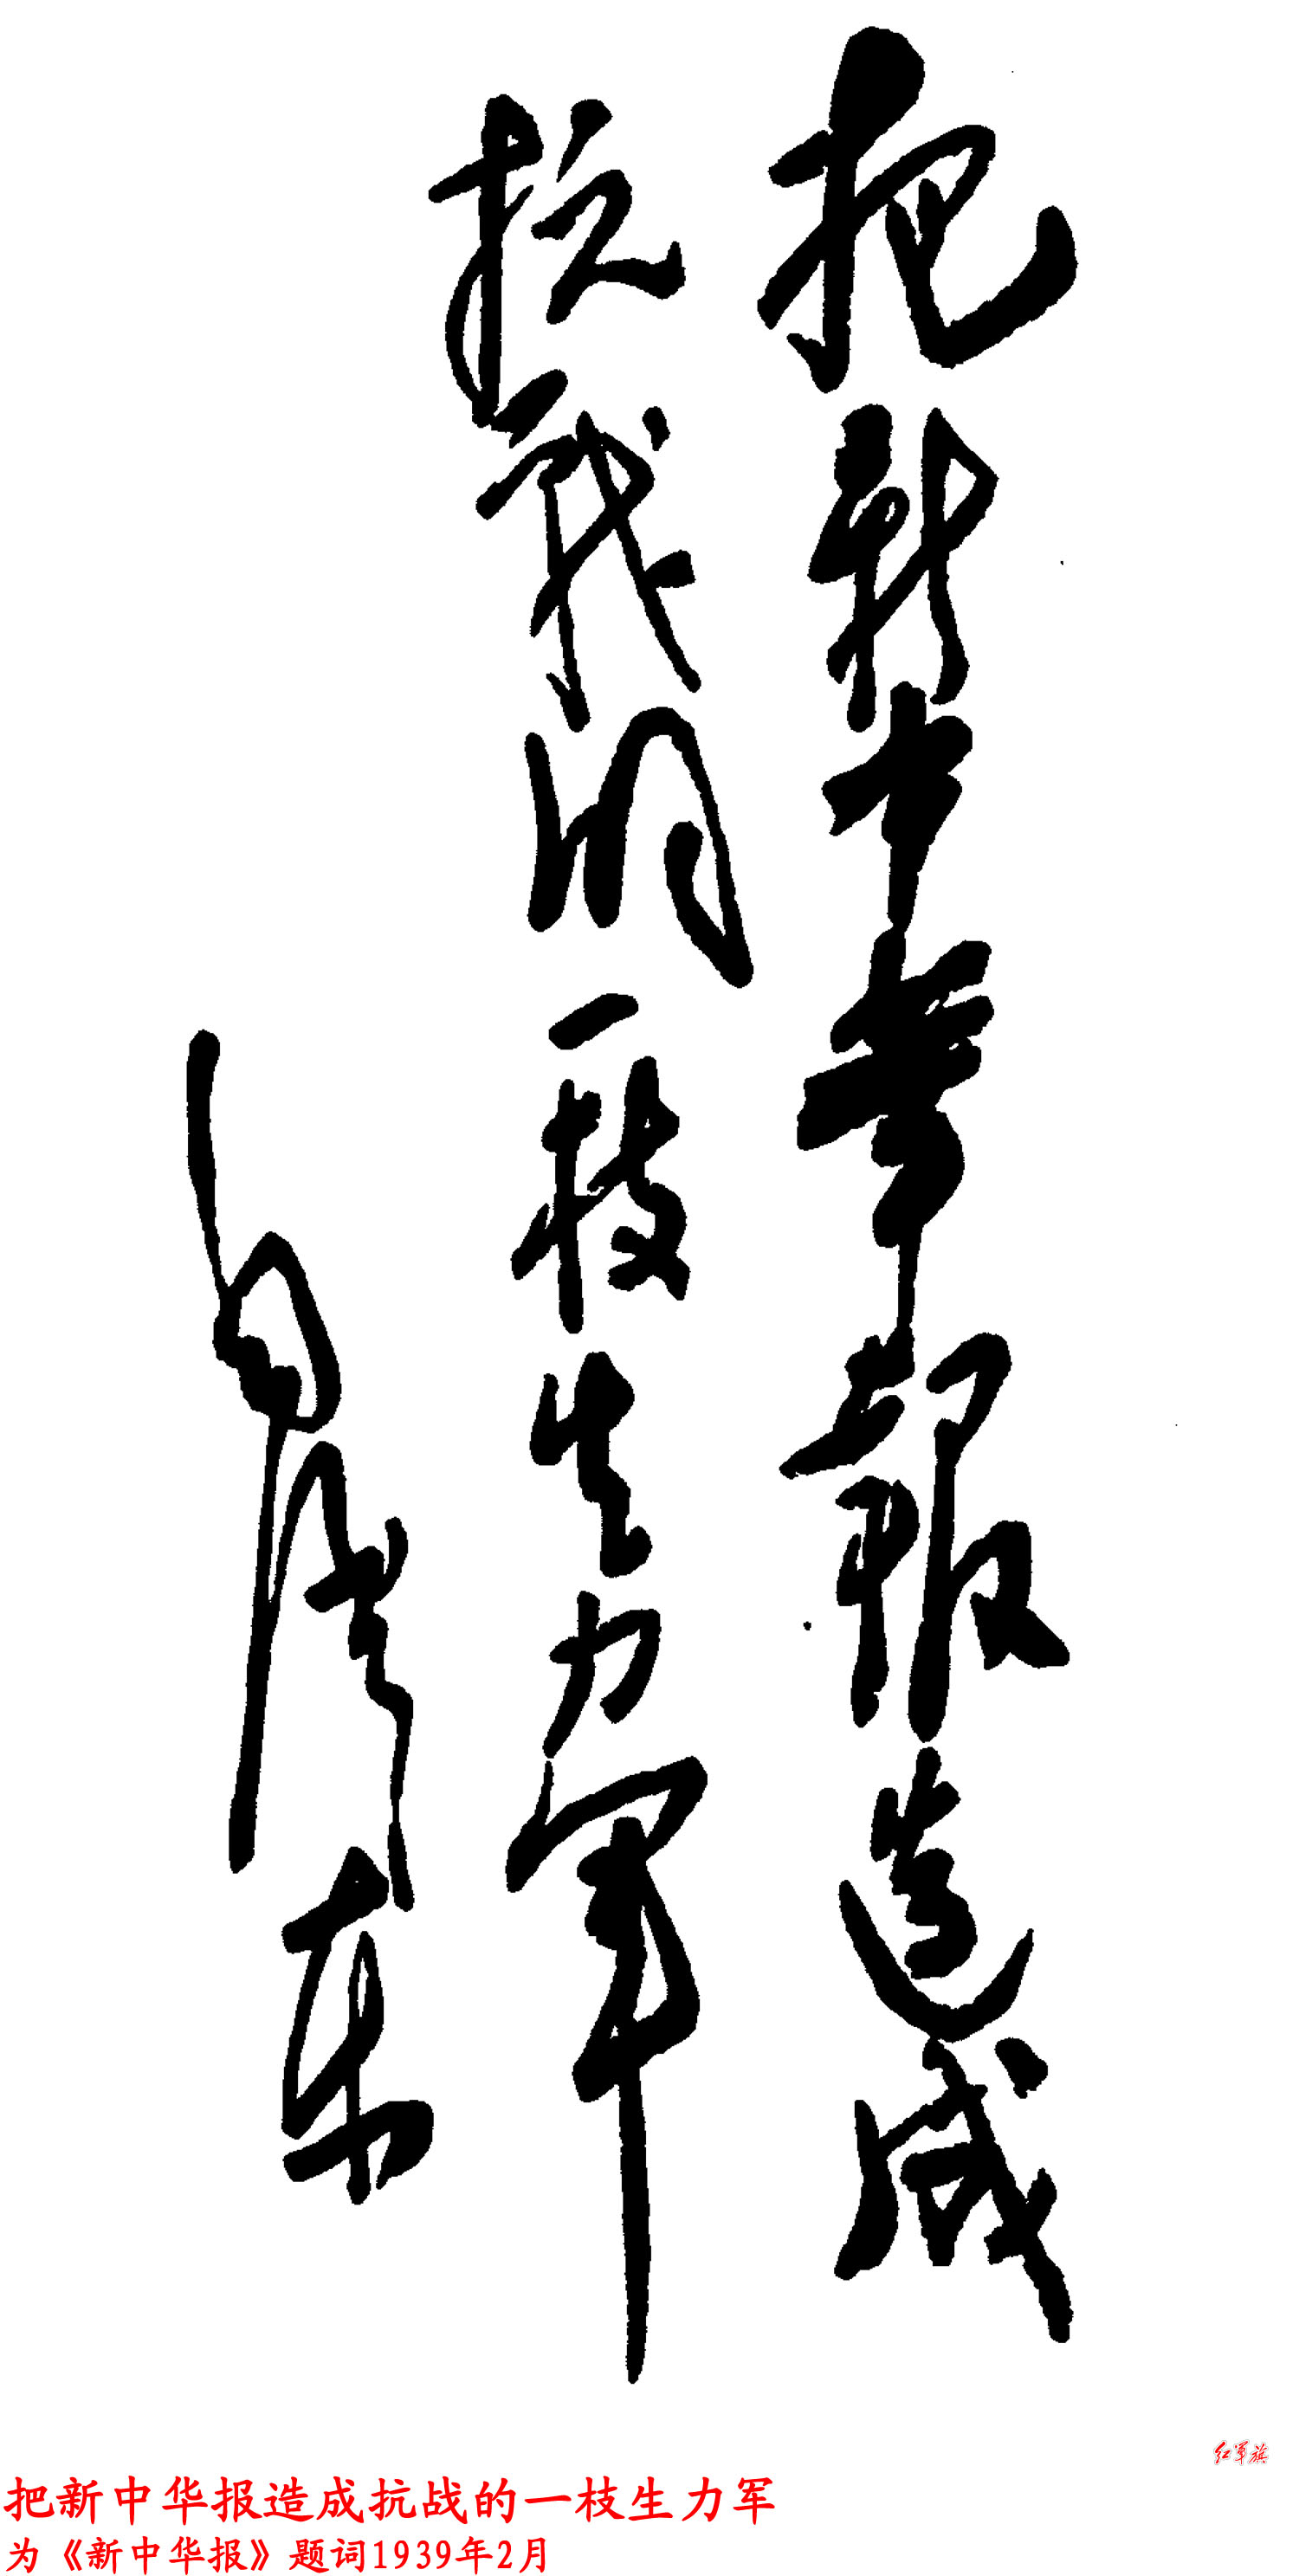 把新中華報造成
抗戰的一枝生力軍
毛澤東
红军旗
把新中华报造成抗战的一枝生力军
为《新中华报》题词1939年2月